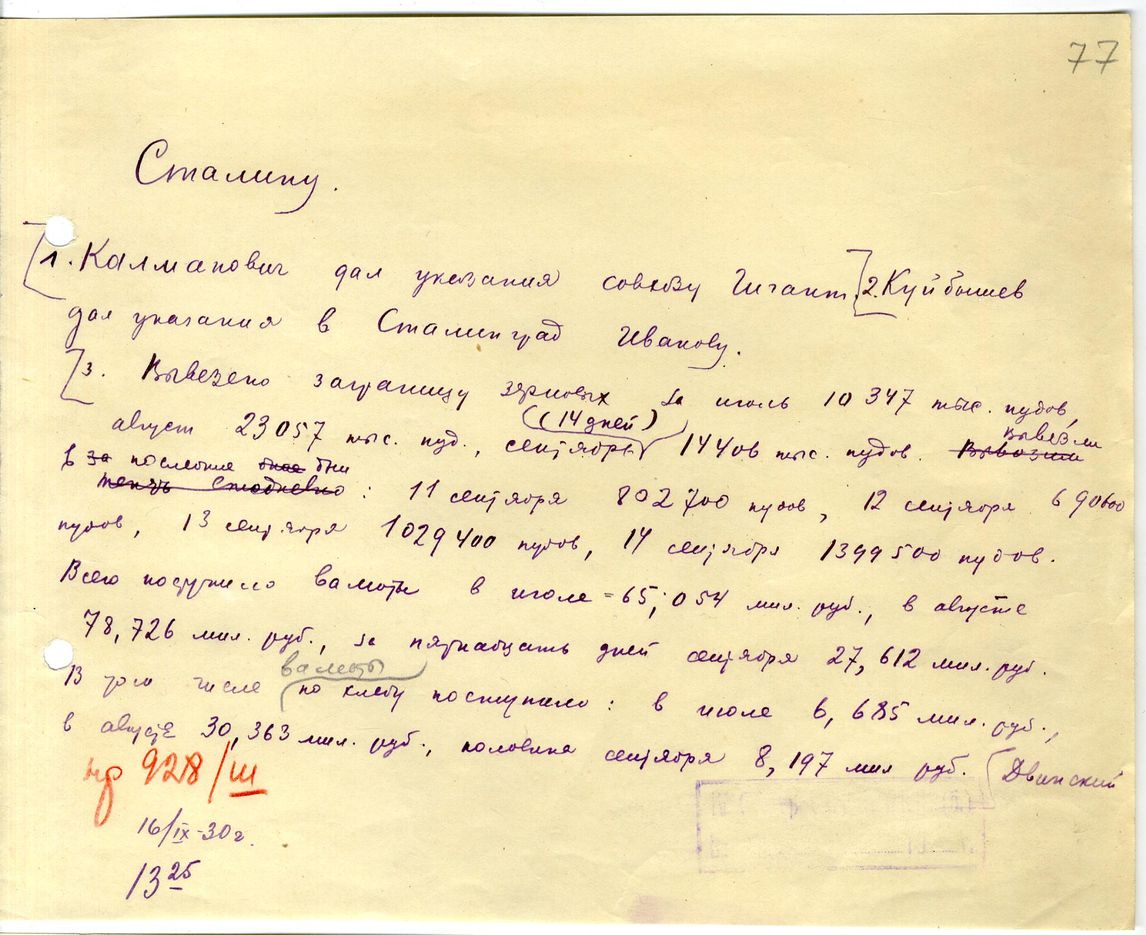 77
Сталину.
1. Калманович дал указания совхозу Гигант. 2. Куйбышев
дал указания в Сталинград Иванову.
3. Вывезено заграницу зерновых за июль 10347 тыс. пудов,
(14 дней)
август 23057 тыс. пуд., сентябрь 14406 тыс. пудов. Вывозим вывезли
в за последние дни
теперь ежедневно: 11 сентября 802700 пудов, 12 сентября 690600
пудов, 13 сентября 1029400 пудов, 14 сентября 1399500 пудов.
Всего поступило валюты в июле - 65,054 мил. руб., в августе
78,726 мил. руб., за пятнадцать дней сентября 27,612 мил. руб.
валюты
В том числе по хлебу поступило: в июле 6,685 мил. руб.,
в августе 30,363 мил. руб., половина сентября 8,197 мил руб. Двинский
пр 928/III
16/IX-30 г.
13 25